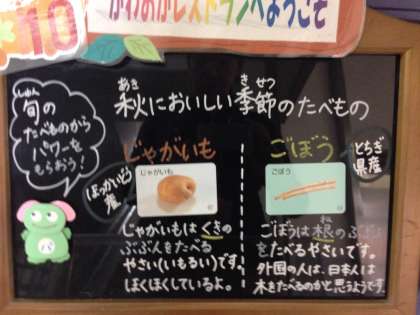 10
かわおかレストランへようこそ
しゅん
旬の
たべものから
パワーを
もらおう!
あき きせつ
秋においしい季節のたべもの
じゃがいも
ほっかいどう
産
じゃがいも
じゃがいもは くきの
ぶぶんをたべる
やさい(いもるい)です。
ほくほくしているよ。
ごぼう
とちぎ
県産
ごぼう
ね
ごぼうは 根の ぶぶん
をたべるやさいです。
外国の人は、日本人は
木をたべるのかと思うようです。